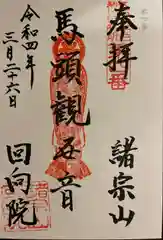 奉拝
諸宗山
馬頭観世音
令和四年
三月二十六日
回向院